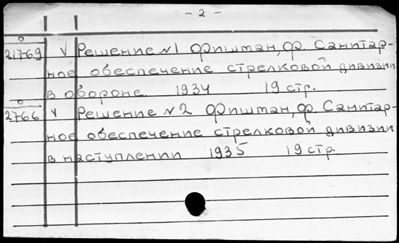 - 2 -
21769 V Решение №1 Фиштан, ф. Санитар-
ное обеспечение стрелковой дивизии
в обороне 1934 19 стр.
2766 V Решение №2 Фиштан, ф. Санитар-
ное обеспечение стрелковой дивизии
в наступлении 1935 19 стр.